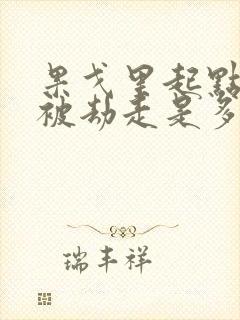 果戈里起點
被劫走是多
瑞丰祥